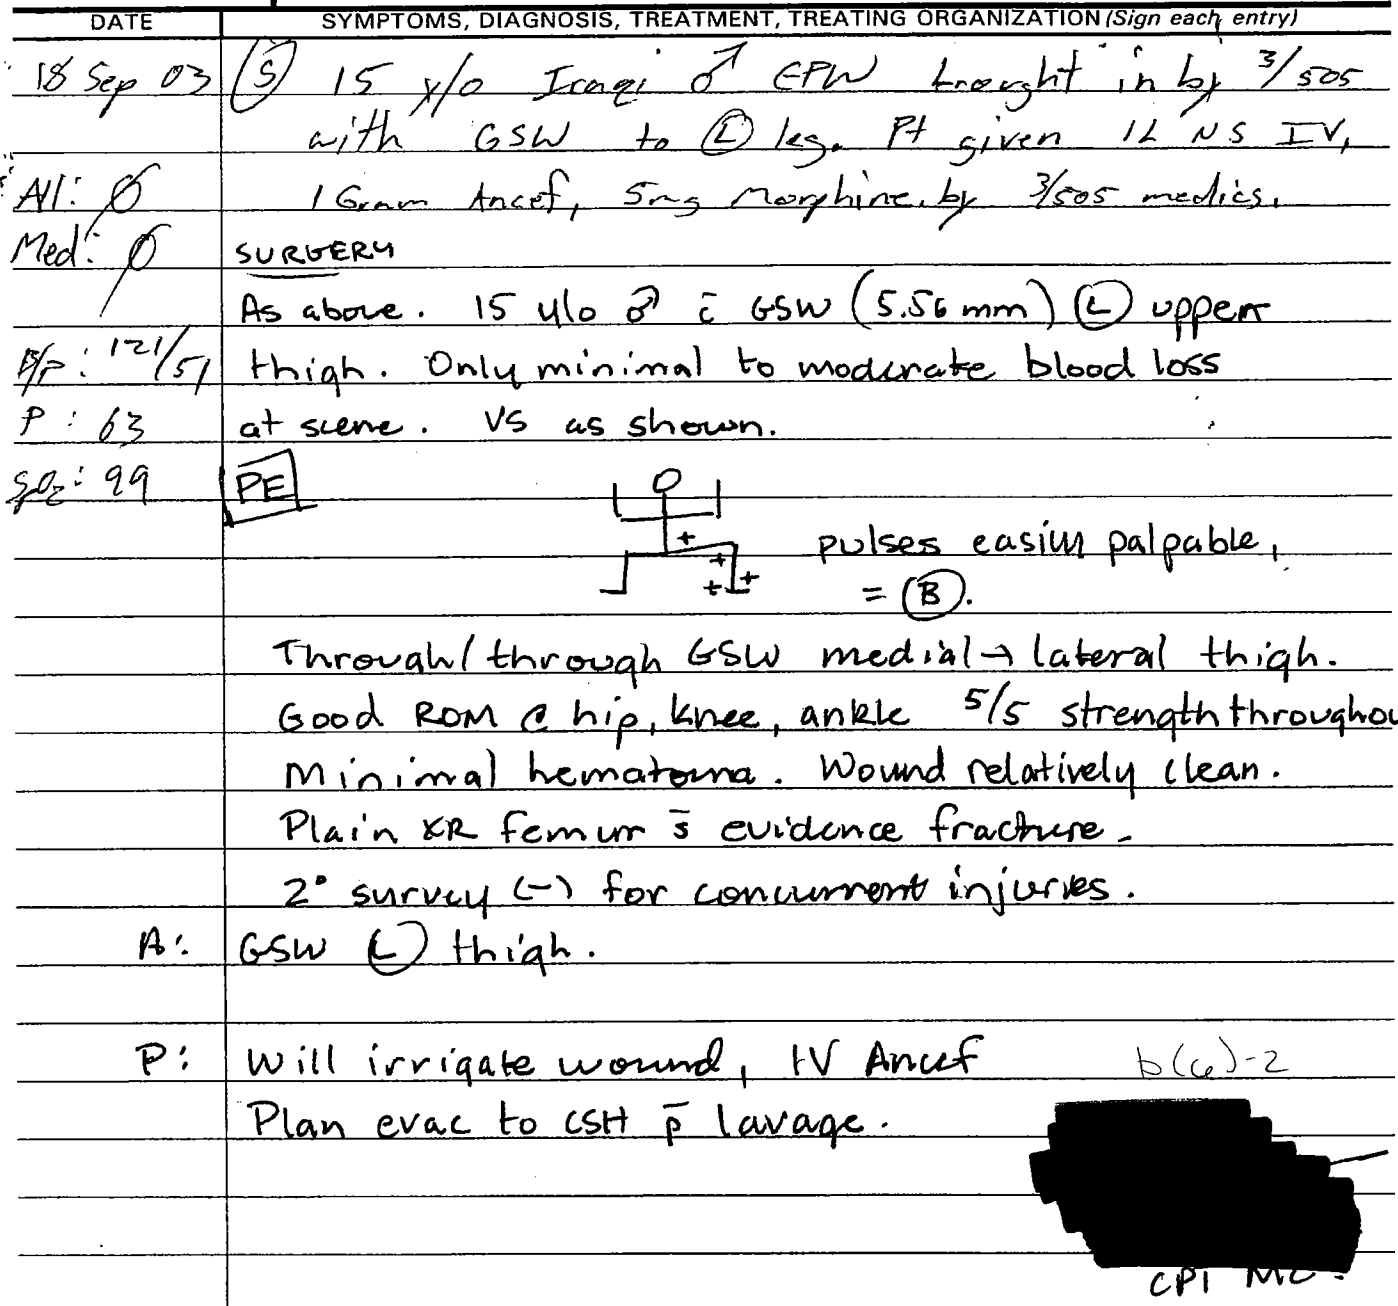 DATE SYMPTOMS, DIAGNOSIS, TREATMENT, TREATING ORGANIZATION (Sign each entry)
18 Sep 03 Ⓢ 15 y/o Iraqi ♂ EPW brought in by 3/505
with GSW to Ⓛ leg. Pt given 1L NS IV,
All: Ø 1 Gram Ancef, 5mg Morphine by 3/505 medics.
Med: Ø SURGERY
As above. 15 y/o ♂ c̄ GSW (5.56 mm) Ⓛ upper
B/P: 121/51 thigh. Only minimal to moderate blood loss
P: 63 at scene. VS as shown.
SpO2: 99 PE
+ + + + pulses easily palpable,
= Ⓑ.
Through/through GSW medial → lateral thigh.
Good ROM @ hip, knee, ankle 5/5 strength throughou
Minimal hematoma. Wound relatively clean.
Plain XR femur s̄ evidence fracture.
2° survey (-) for concurrent injuries.
A: GSW Ⓛ thigh.
P: Will irrigate wound, IV Ancef b(6)-2
Plan evac to CSH p̄ lavage.
CPT MC